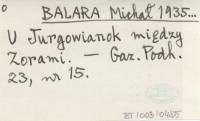 BALARA Michał 1935...
U Jurgowianok między
Zorami. — Gaz. Podh.
23, nr 15.